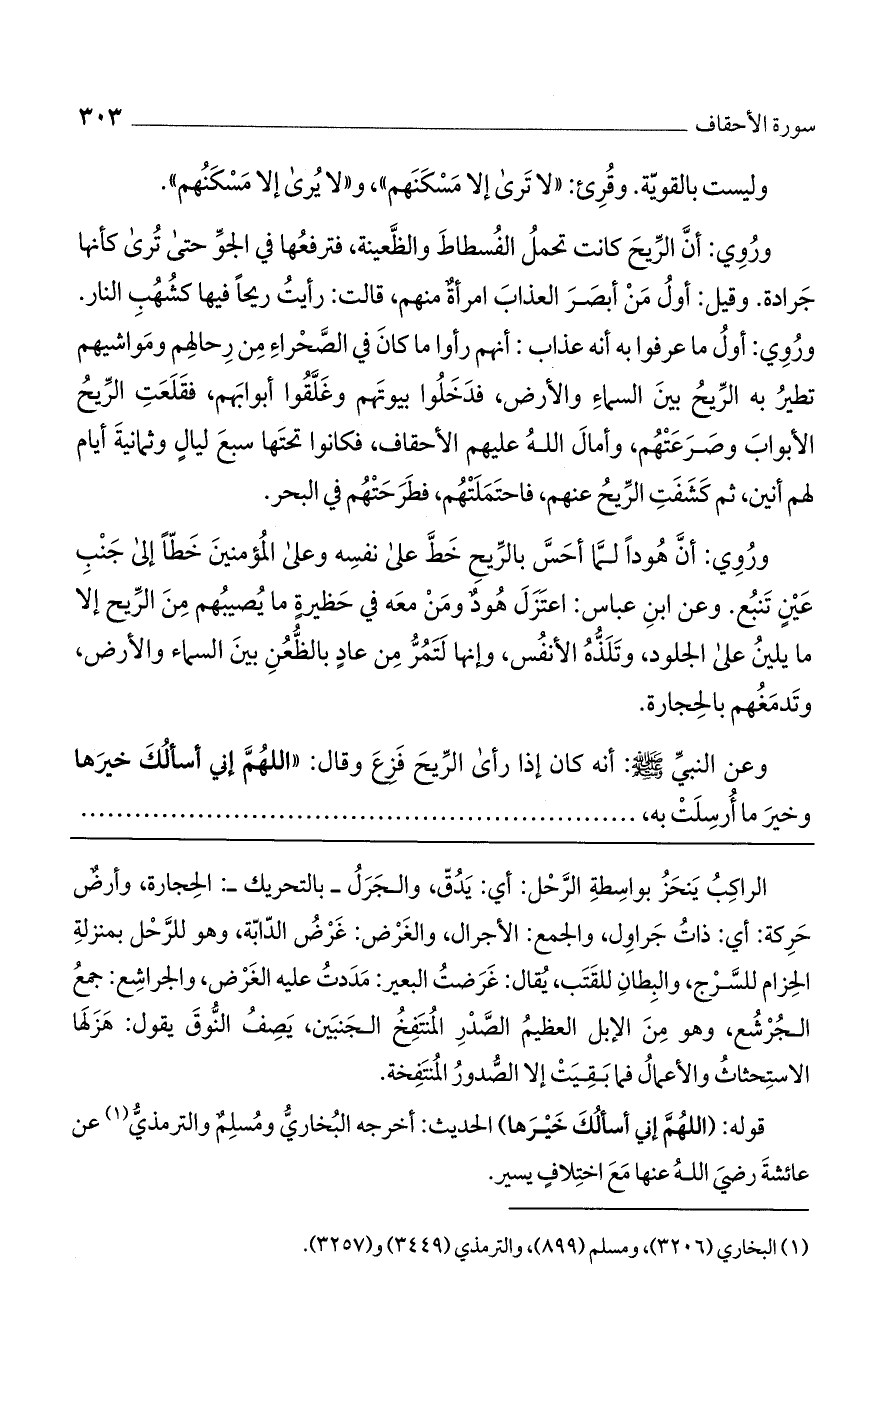 سورة الأحقاف ٣٠٣
وليست بالقويّة. وقُرِئ: «لا تَرىٰ إلا مَسْكَنَهم»، و«لا يُرىٰ إلا مَسْكَنُهم».
ورُوِي: أنَّ الرِّيحَ كانت تحملُ الفُسطاطَ والظَّعينة، فترفعُها في الجوِّ حتىٰ تُرىٰ كأنها
جَرادة. وقيل: أولُ مَنْ أبصَرَ العذابَ امرأةٌ منهم، قالت: رأيتُ ريحاً فيها كشُهُبِ النار.
ورُوِي: أولُ ما عرفوا به أنه عذاب : أنهم رأوا ما كانَ في الصَّحْراءِ مِن رِحالهِم ومَواشيهم
تطيرُ به الرِّيحُ بينَ السماءِ والأرض، فدَخَلُوا بيوتَهم وغَلَّقُوا أبوابَهم، فقَلَعَتِ الرِّيحُ
الأبوابَ وصَرَعَتْهُم، وأمالَ اللهُ عليهم الأحقاف، فكانوا تحتَها سبعَ ليالٍ وثمانيةَ أيام
لهم أنين، ثم كَشَفَتِ الرِّيحُ عنهم، فاحتَمَلَتْهُم، فطَرَحَتْهُم في البحر.
ورُوِي: أنَّ هُوداً لـمَّا أحَسَّ بالرِّيحِ خَطَّ علىٰ نفسِه وعلىٰ المُؤمنينَ خَطّاً إلىٰ جَنْبِ
عَيْنٍ تَنبُع. وعن ابنِ عباس: اعتَزَلَ هُودٌ ومَنْ معَه في حَظيرةٍ ما يُصيبُهم مِنَ الرِّيح إلا
ما يلينُ علىٰ الجلود، وتَلَذُّهُ الأنفُس، وإنها لَتَمُرُّ مِن عادٍ بالظُّعُنِ بينَ السماء والأرض،
وتَدمَغُهم بالحِجارة.
وعن النبيِّ ﷺ: أنه كان إذا رأىٰ الرِّيحَ فَزِعَ وقال: «اللهُمَّ إني أسألُكَ خيرَها
وخيرَ ما أُرسِلَتْ به، ............................................................
الراكِبُ يَنحَزُ بواسِطةِ الرَّحْل: أي: يَدُقّ، والـجَرَلُ ـ بالتحريك ـ: الحِجارة، وأرضٌ
حَرِكة: أي: ذاتُ جَراوِل، والجمع: الأجرال، والغَرْض: غَرْضُ الدّابّة، وهو للرَّحْل بمنزلةِ
الحِزام للسَّـرْج، والبِطانِ للقَتَب، يُقال: غَرَضتُ البعير: مَدَدتُ عليه الغَرْض، والجراشِع: جمعُ
الـجُرْشُع، وهو مِنَ الإبل العظيمُ الصَّدْرِ المُنتَفِخُ الـجَنبَين، يَصِفُ النُّوقَ يقول: هَزَلَها
الاستِحثاثُ والأعمالُ فما بَقِيَتْ إلا الصُّدورُ المُنتَفِخة.
قوله: (اللهُمَّ إني أسألُكَ خَيْرَها) الحديث: أخرجه البُخاريُّ ومُسلِمٌ والترمذيُّ(١) عن
عائشةَ رضيَ اللهُ عنها مَعَ اختِلافٍ يسير.
(١) البخاري (٣٢٠٦)، ومسلم (٨٩٩)، والترمذي (٣٤٤٩) و(٣٢٥٧).